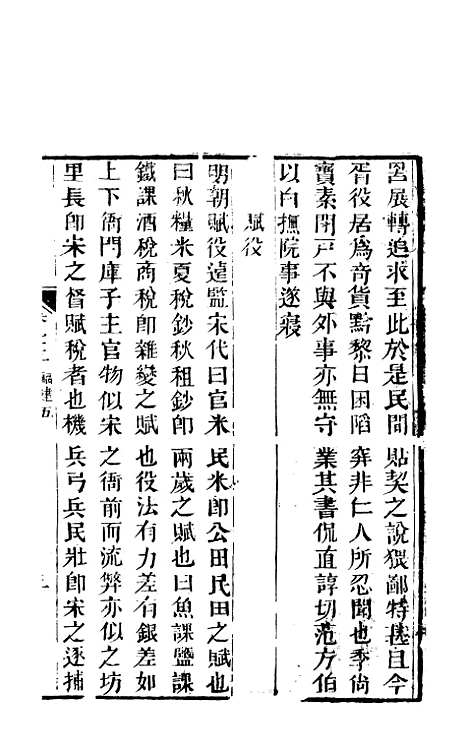 詈展轉追求至此於是民間貼契之說猥鄙特甚且今
胥役居爲奇貨黠黎日困陷穽非仁人所忍聞也季尚
寶素閉戸不與外事亦無守業其書侃直諄切范方伯
以白撫院事遂寢
賦役
明朝賦役遠監宋代曰官米民米卽公田民田之賦也
曰秋糧米夏稅鈔秋租鈔卽兩歲之賦也曰魚課鹽課
鐵課酒稅商稅卽雜變之賦也役法有力差有銀差如
上下衙門庫子主官物似宋之衙前而流弊亦似之坊
里長卽宋之督賦稅者也機兵弓兵民壯卽宋之逐捕
福建五
三